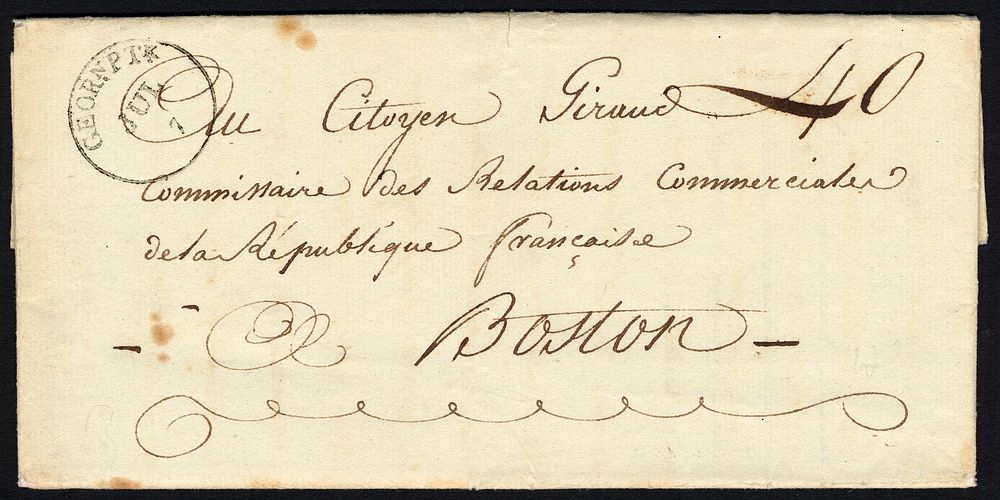 GEORNPTK
JUL
7
Au Citoyen Giraud 40
Commissaire des Relations Commerciales
de la République française
- à Boston -